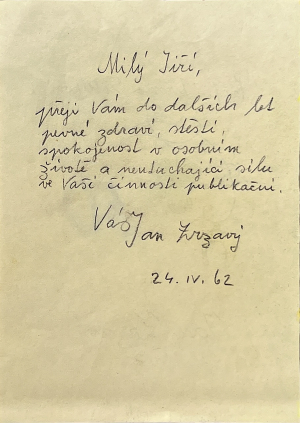 Milý Jiří,
přeji Vám do dalších let
pevné zdraví, štěstí,
spokojenost v osobním
životě a neutuchající sílu
ve Vaší činnosti publikační.
Váš Jan Zrzavý
24. IV. 62